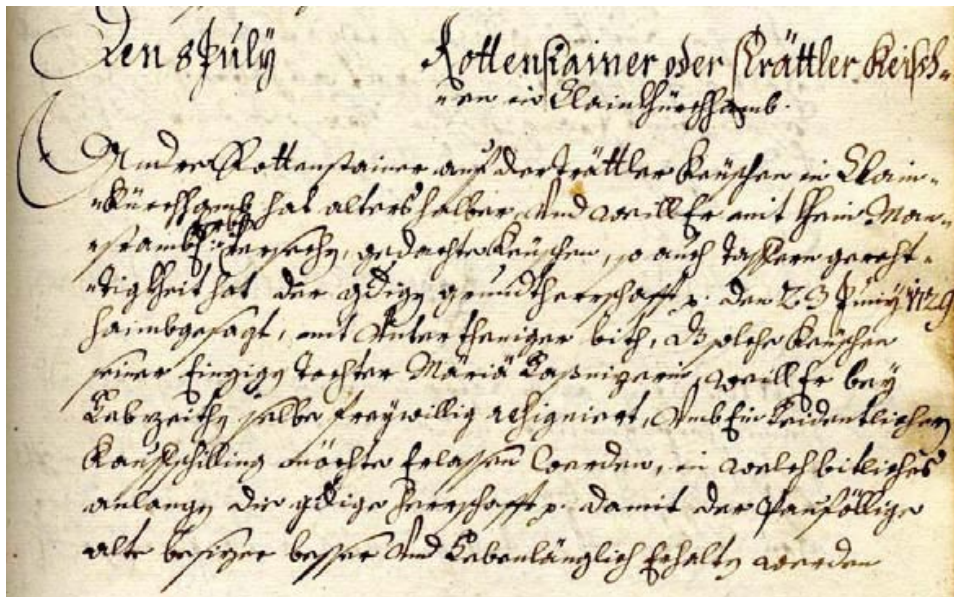 Den 8 July Rottenstainer oder Trättler Keisch=
=en in Clain Kürchhamb.
Andre Rottenstainer auf der Trättler Keuschen in Clain=
=Kürchhamb hat alters halber, Vnd weill Er mit khein Man=
versechen, gedachte Keuschen, so auch Tafferngerecht=
=tigkheit hat der gdigen grundtherrschafft p. den 23 Juniy 1729
haimbgesagt, mit Vntertheniger bith, dz solche Keuschen
seiner Einzigen Tochter Mariä weill Er bey
Lebzeithen selbe freywillig resigniert, Vmb Ein Leidentlichen
Kauffschilling möchte Erlassen werden, in welch bitliches
anlangen die gdige herrschafft p. damit der Pauföllige
alte besizer besser Vnd Lebenlänglich Erhalten werden